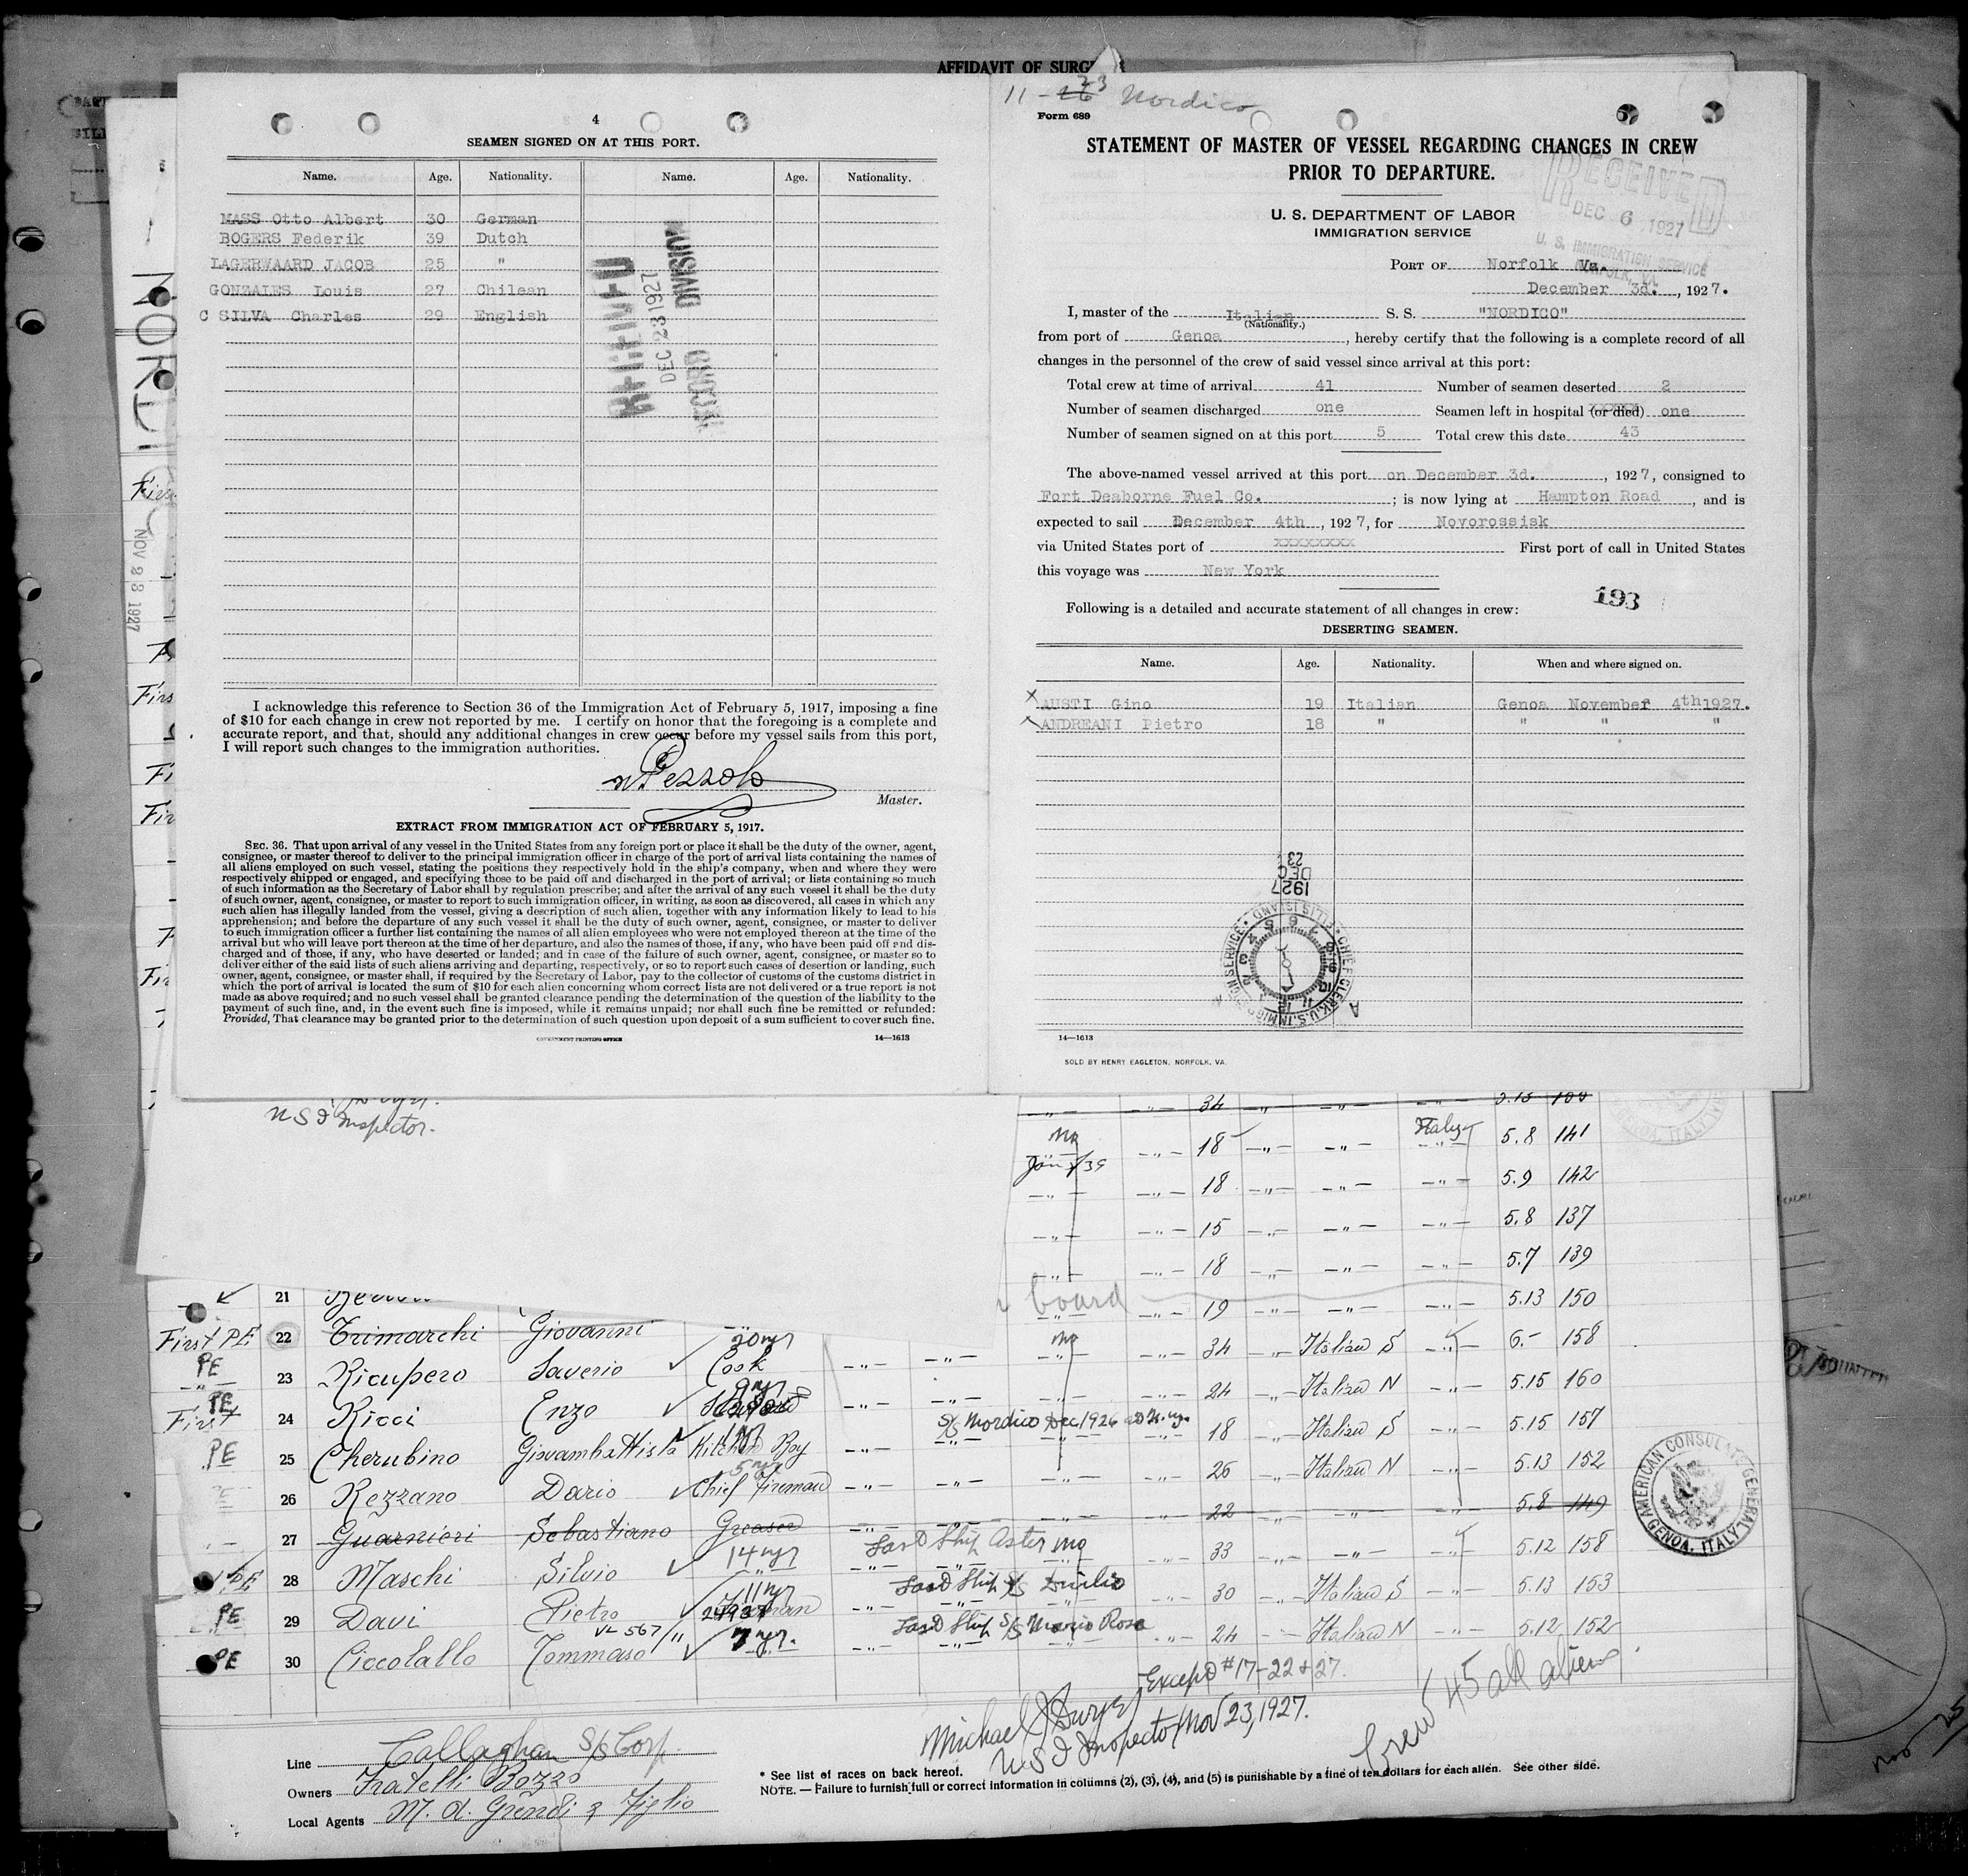 AFFIDAVIT OF SURGE
4
SEAMEN SIGNED ON AT THIS PORT.
Name. Age. Nationality. Name. Age. Nationality.
MASS Otto Albert 30 German
BOGERS Federik 39 Dutch
LAGERWAARD JACOB 25 "
GONZALES Louis 27 Chilean
C SILVA Charles 29 English
DEC 23 1927
RECORD DIVISION
I acknowledge this reference to Section 36 of the Immigration Act of February 5, 1917, imposing a fine
of $10 for each change in crew not reported by me. I certify on honor that the foregoing is a complete and
accurate report, and that, should any additional changes in crew occur before my vessel sails from this port,
I will report such changes to the immigration authorities.
Master.
EXTRACT FROM IMMIGRATION ACT OF FEBRUARY 5, 1917.
SEC. 36. That upon arrival of any vessel in the United States from any foreign port or place it shall be the duty of the owner, agent,
consignee, or master thereof to deliver to the principal immigration officer in charge of the port of arrival lists containing the names of
all aliens employed on such vessel, stating the positions they respectively hold in the ship's company, when and where they were
respectively shipped or engaged, and specifying those to be paid off and discharged in the port of arrival; or lists containing so much
of such information as the Secretary of Labor shall by regulation prescribe; and after the arrival of any such vessel it shall be the duty
of such owner, agent, consignee, or master to report to such immigration officer, in writing, as soon as discovered, all cases in which any
such alien has illegally landed from the vessel, giving a description of such alien, together with any information likely to lead to his
apprehension; and before the departure of any such vessel it shall be the duty of such owner, agent, consignee, or master to deliver
to such immigration officer a further list containing the names of all alien employees who were not employed thereon at the time of the
arrival but who will leave port thereon at the time of her departure, and also the names of those, if any, who have been paid off and dis-
charged and of those, if any, who have deserted or landed; and in case of the failure of such owner, agent, consignee, or master so to
deliver either of the said lists of such aliens arriving and departing, respectively, or so to report such cases of desertion or landing, such
owner, agent, consignee, or master shall, if required by the Secretary of Labor, pay to the collector of customs of the customs district in
which the port of arrival is located the sum of $10 for each alien concerning whom correct lists are not delivered or a true report is not
made as above required; and no such vessel shall be granted clearance pending the determination of the question of the liability to the
payment of such fine, and, in the event such fine is imposed, while it remains unpaid; nor shall such fine be remitted or refunded:
Provided, That clearance may be granted prior to the determination of such question upon deposit of a sum sufficient to cover such fine.
GOVERNMENT PRINTING OFFICE 14—1613
11 - 26 23 Nordico
Form 689
STATEMENT OF MASTER OF VESSEL REGARDING CHANGES IN CREW
PRIOR TO DEPARTURE.
RECEIVED
DEC 6 1927
U. S. IMMIGRATION SERVICE
NORFOLK, VA.
U. S. DEPARTMENT OF LABOR
IMMIGRATION SERVICE
PORT OF Norfolk Va.
December 3d., 1927.
I, master of the Italian S. S. "NORDICO"
(Nationality.)
from port of Genoa, hereby certify that the following is a complete record of all
changes in the personnel of the crew of said vessel since arrival at this port:
Total crew at time of arrival 41 Number of seamen deserted 2
Number of seamen discharged one Seamen left in hospital (or died) one
Number of seamen signed on at this port 5 Total crew this date 43
The above-named vessel arrived at this port on December 3d., 1927, consigned to
Fort Deaborne Fuel Co.; is now lying at Hampton Road, and is
expected to sail December 4th, 1927, for Novorossisk
via United States port of xxxxxxxx First port of call in United States
this voyage was New York
193
Following is a detailed and accurate statement of all changes in crew:
DESERTING SEAMEN.
Name. Age. Nationality. When and where signed on.
AUSTI Gino 19 Italian Genoa November 4th 1927.
ANDREANI Pietro 18 " " " "
23 DEC 1927
14—1613
SOLD BY HENRY EAGLETON, NORFOLK, VA.
NORDI
NOV 23 1927
U S I Inspector.
34
no 18 Italy 5.8 141
18 5.9 142
15 5.8 137
18 5.7 139
21 board 19 5.13 150
First PE 22 Trimarchi Giovanni 20 yr no 34 Italian S 6.- 158
PE 23 Ricupero Saverio Cook 24 Italian N 5.15 160
PE First 24 Ricci Enzo S/S Nordico Dec 1926 18 Italian S 5.15 157
PE 25 Cherubino Giovambattista Kitchen Boy 26 Italian N 5.13 152
26 Rezzano Dario Chief Fireman 22 5.8 149
27 Guarnieri Sebastiano Greaser Last Ship Aster no 33 5.12 158
PE 28 Maschi Silvio 14 yr Last Ship S/S Duilio 30 Italian S 5.13 153
PE 29 Davi Pietro 11 yr Last Ship S/S Maria Rosa 24 Italian N 5.12 152
PE 30 Ciccolallo Tommaso 7 yr.
Except #17-22 & 27.
Michael J Dwyer
U S I Inspector Nov 23, 1927.
Crew 45 all aliens
AMERICAN CONSULATE GENERAL GENOA, ITALY
Line Callaghan S/S Corp.
Owners Fratelli Bozzo
Local Agents M. A. Grendi & Figlio
* See list of races on back hereof.
NOTE. — Failure to furnish full or correct information in columns (2), (3), (4), and (5) is punishable by a fine of ten dollars for each alien. See other side.